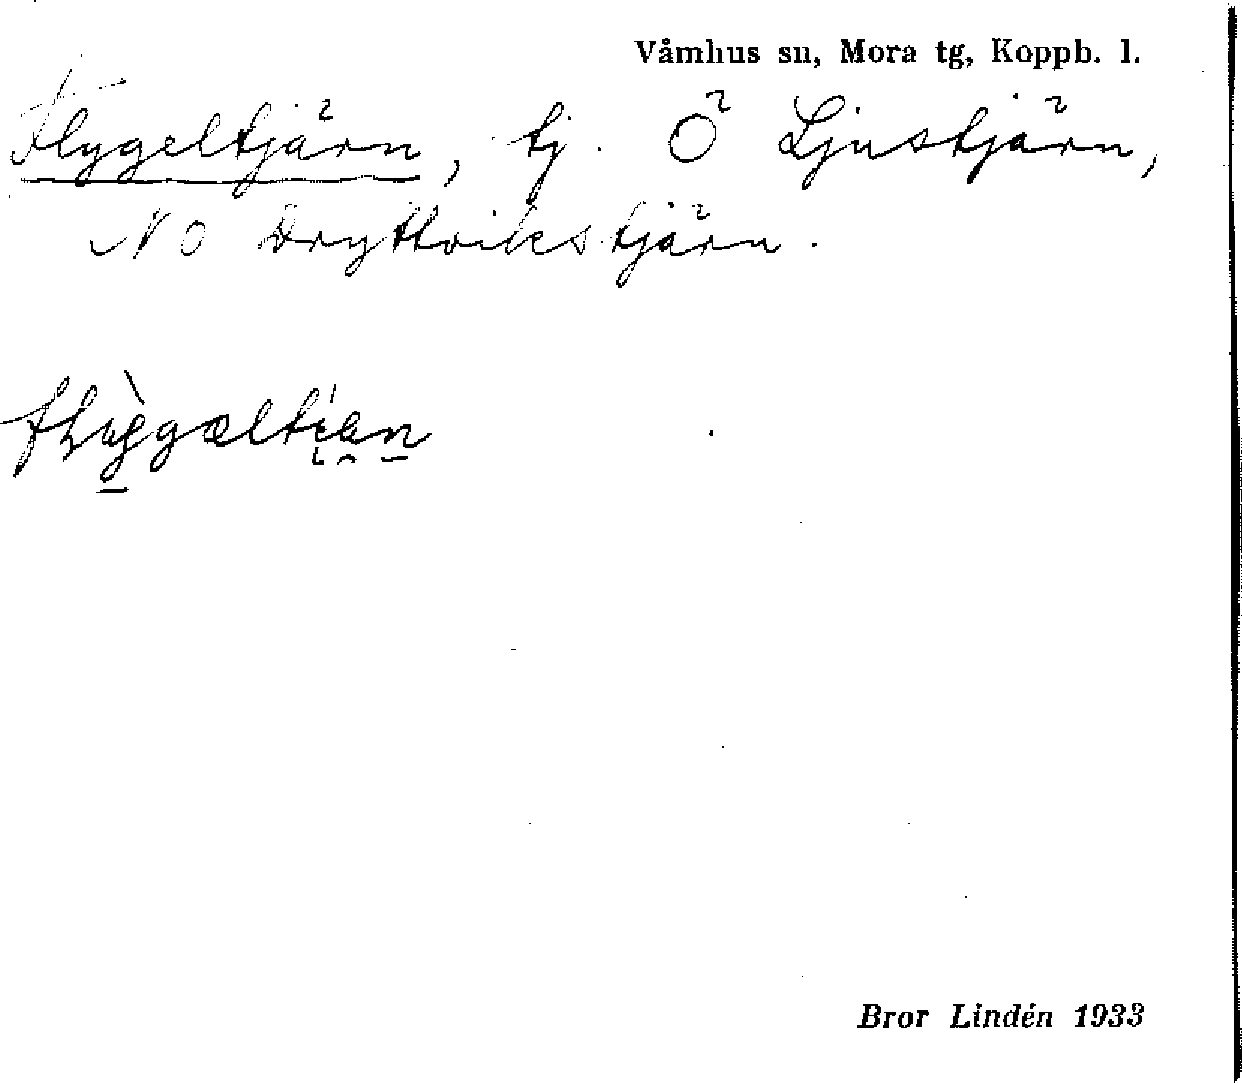 Våmhus sn, Mora tg, Koppb. l.
Flygeltjärn, tj. Ö Ljustjärn,
NO Dryttvikstjärn.
Bror Lindén 1933